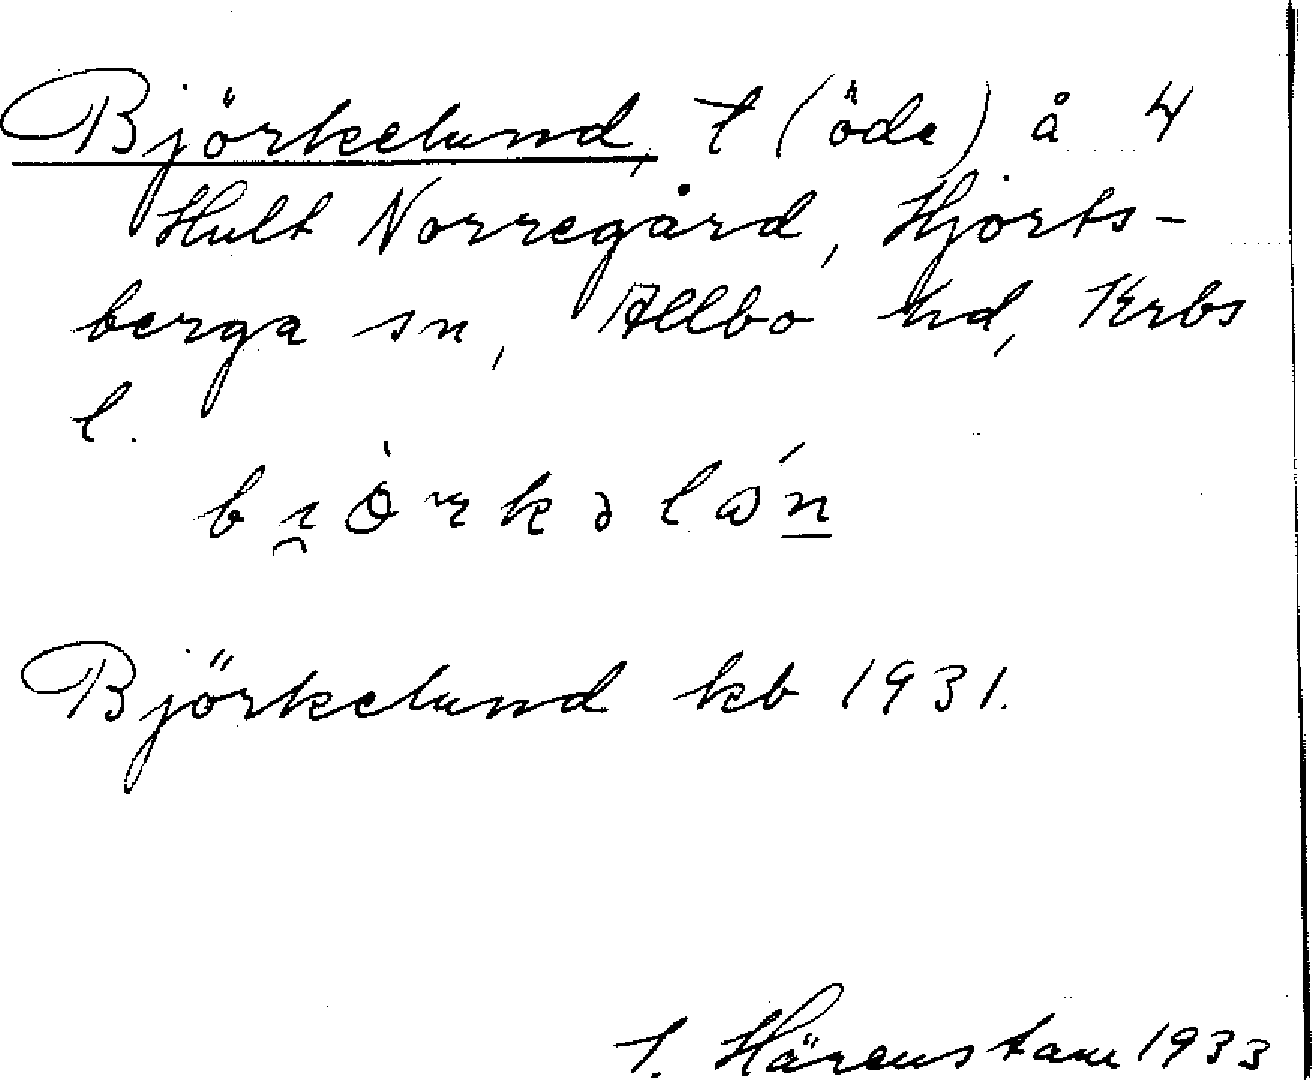 Björkelund, t (öde) å 4
Hult Norregård, Hjorts-
berga sn, Allbo hd, Krbs
l.
Björkelund kb 1931.
T. Härenstam 1933